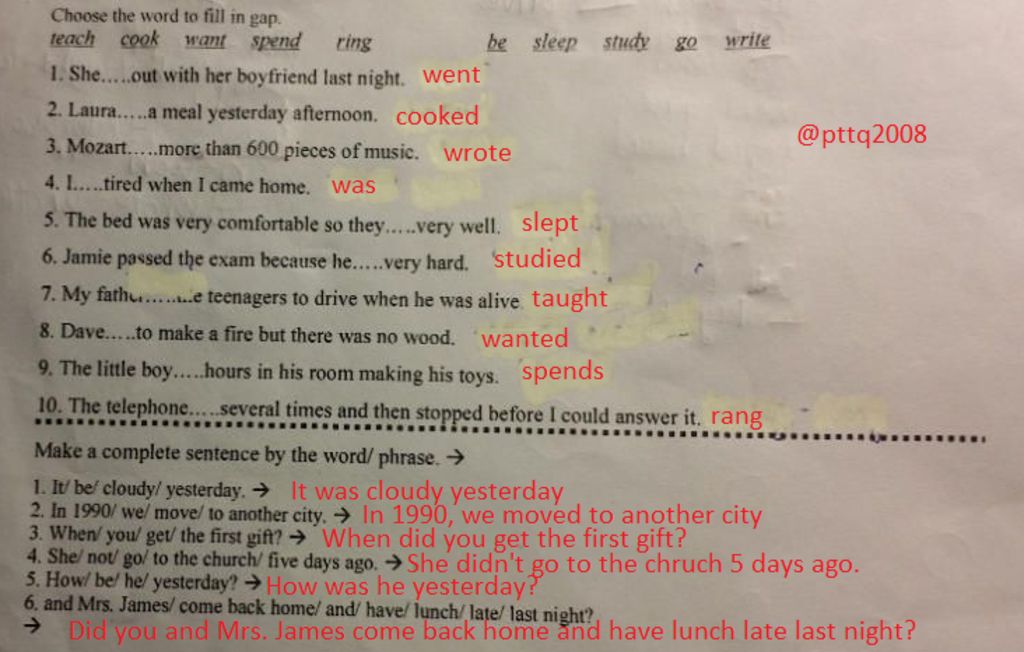 Choose the word to fill in gap.
teach cook want spend ring be sleep study go write
1. She.....out with her boyfriend last night. went
2. Laura.....a meal yesterday afternoon. cooked
@pttq2008
3. Mozart.....more than 600 pieces of music. wrote
4. I.....tired when I came home. was
5. The bed was very comfortable so they.....very well. slept
6. Jamie passed the exam because he.....very hard. studied
7. My teenagers to drive when he was alive. taught
8. Dave.....to make a fire but there was no wood. wanted
9. The little boy.....hours in his room making his toys. spends
10. The telephone.....several times and then stopped before I could answer it. rang
Make a complete sentence by the word/ phrase. →
1. It/ be/ cloudy/ yesterday. → It was cloudy yesterday
2. In 1990/ we/ move/ to another city. → In 1990, we moved to another city
3. When/ you/ get/ the first gift? → When did you get the first gift?
4. She/ not/ go/ to the church/ five days ago. → She didn't go to the chruch 5 days ago.
5. How/ be/ he/ yesterday? → How was he yesterday?
6. and Mrs. James/ come back home/ and/ have/ lunch/ late/ last night?
→ Did you and Mrs. James come back home and have lunch late last night?